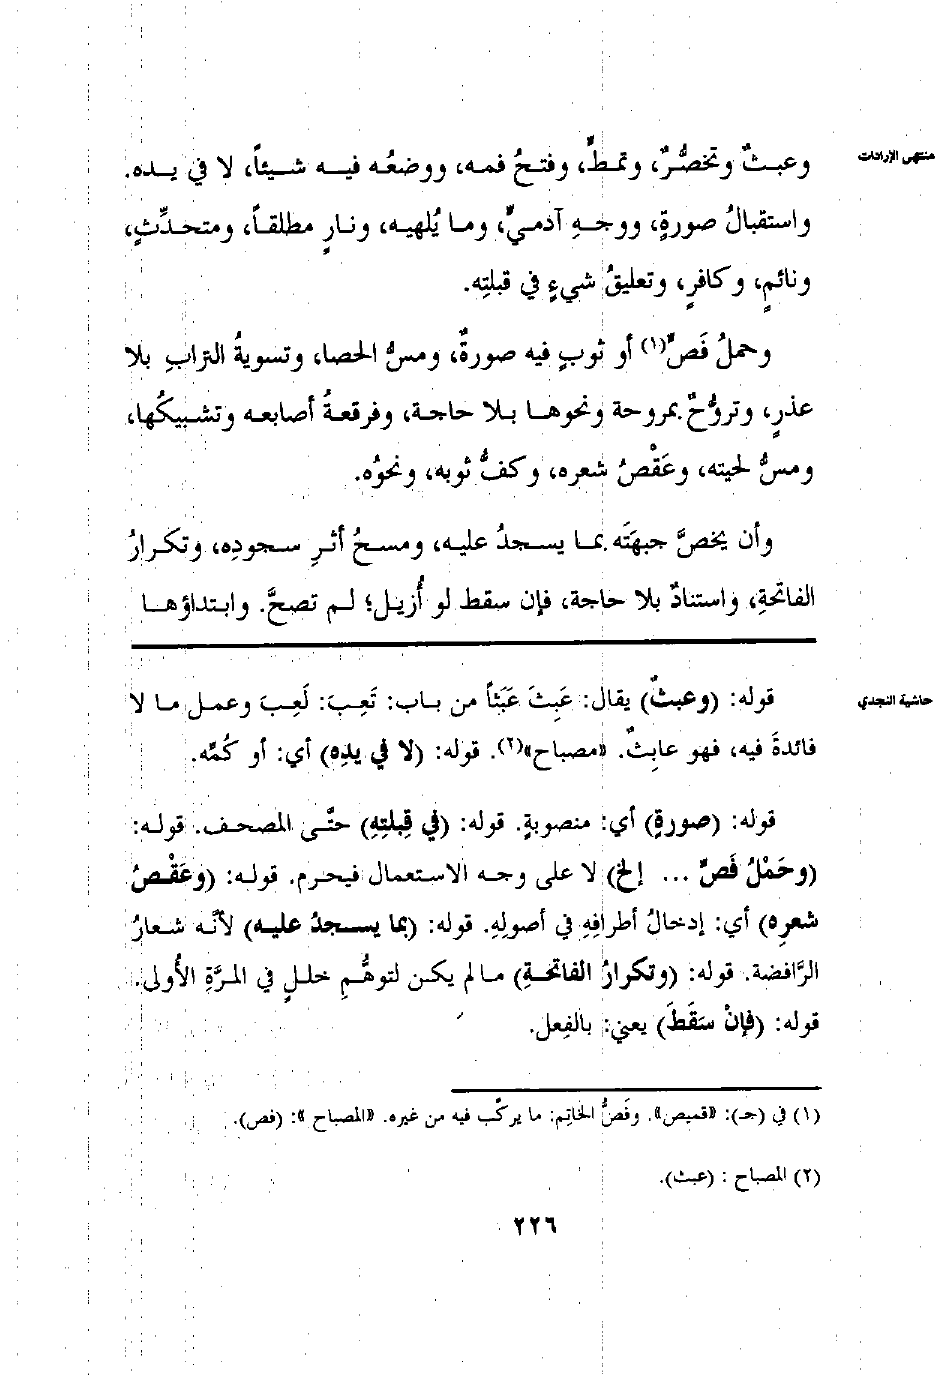 منتهى الإرادات
وعبثٌ وتخصُّرٌ، وتمطٍّ، وفتحُ فمه، ووضعُه فيه شيئاً، لا في يده.
واستقبالُ صورةٍ، ووجهِ آدميٍّ، وما يُلهيه، ونارٍ مطلقاً، ومتحدِّثٍ،
ونائمٍ، وكافرٍ، وتعليقُ شيءٍ في قبلتِه.
وحملُ فَصٍّ(١) أو ثوبٍ فيه صورةٌ، ومسُّ الحصا، وتسويةُ الترابِ بلا
عذرٍ، وتروُّحٌ بمروحة ونحوها بلا حاجة، وفرقعةُ أصابعه وتشبيكُها،
ومسُّ لحيته، وعَقْصُ شعره، وكفُّ ثوبه، ونحوُه.
وأن يخصَّ جبهتَه بما يسجدُ عليه، ومسحُ أثرِ سجودِه، وتكرارُ
الفاتحةِ، واستنادٌ بلا حاجة، فإن سقط لو أُزيل؛ لم تصحَّ. وابتداؤها
حاشية النجدي
قوله: (وعبثٌ) يقال: عَبِثَ عَبَثاً من باب: تَعِبَ: لَعِبَ وعمل ما لا
فائدةَ فيه، فهو عابِثٌ. «مصباح»(٢). قوله: (لا في يدِه) أي: أو كُمِّه.
قوله: (صورةٍ) أي: منصوبةٍ. قوله: (في قِبلتِهِ) حتَّى المصحف. قوله:
(وحَمْلُ فَصٍّ ... إلخ) لا على وجه الاستعمال فيحرم. قوله: (وعَقْصُ
شعرِه) أي: إدخالُ أطرافِهِ في أصولِهِ. قوله: (بما يسجدُ عليه) لأنَّه شعارُ
الرَّافضة. قوله: (وتكرارُ الفاتحةِ) ما لم يكن لتوهُّمِ خللٍ في المرَّةِ الأُولى.
قوله: (فإنْ سَقَطَ) يعني: بالفِعل.
(١) في (جـ): «قميص». وفَصُّ الخاتِم: ما يركَّب فيه من غيره. «المصباح»: (فص).
(٢) المصباح : (عبث).
٢٢٦